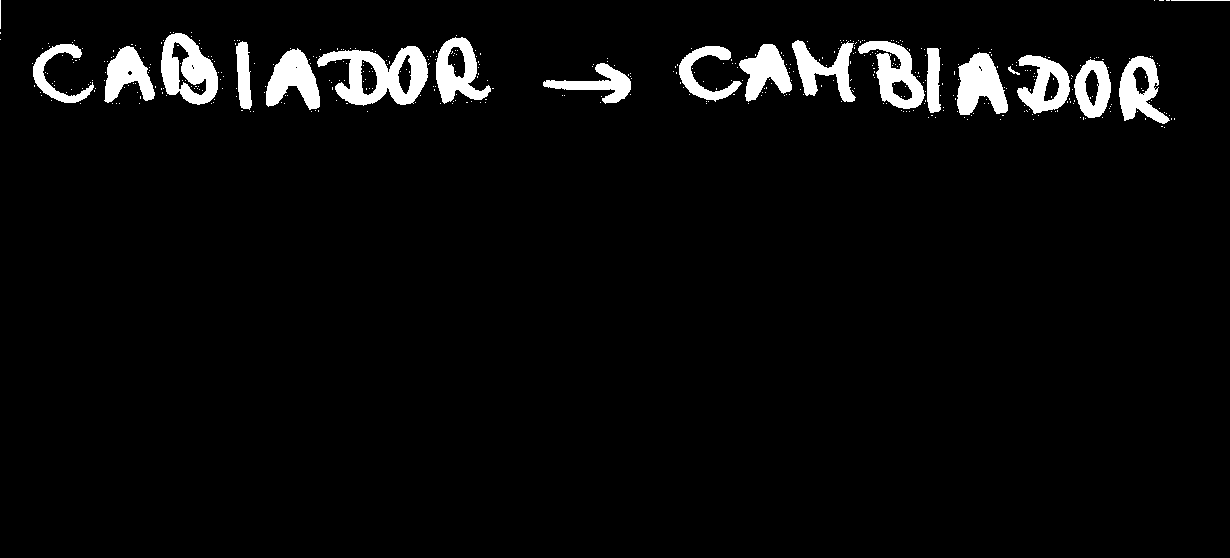 CABIADOR → CAMBIADOR